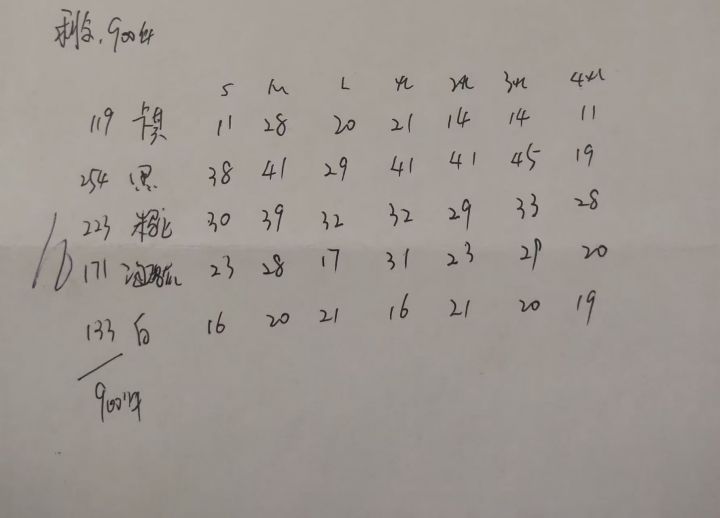 剩余.900件
S M L XL 2XL 3XL 4XL
119 卡其 11 28 20 21 14 14 11
254 黑 38 41 29 41 41 45 19
223 30 39 32 32 29 33 28
171 23 28 17 31 23 29 20
133 白 16 20 21 16 21 20 19
900件